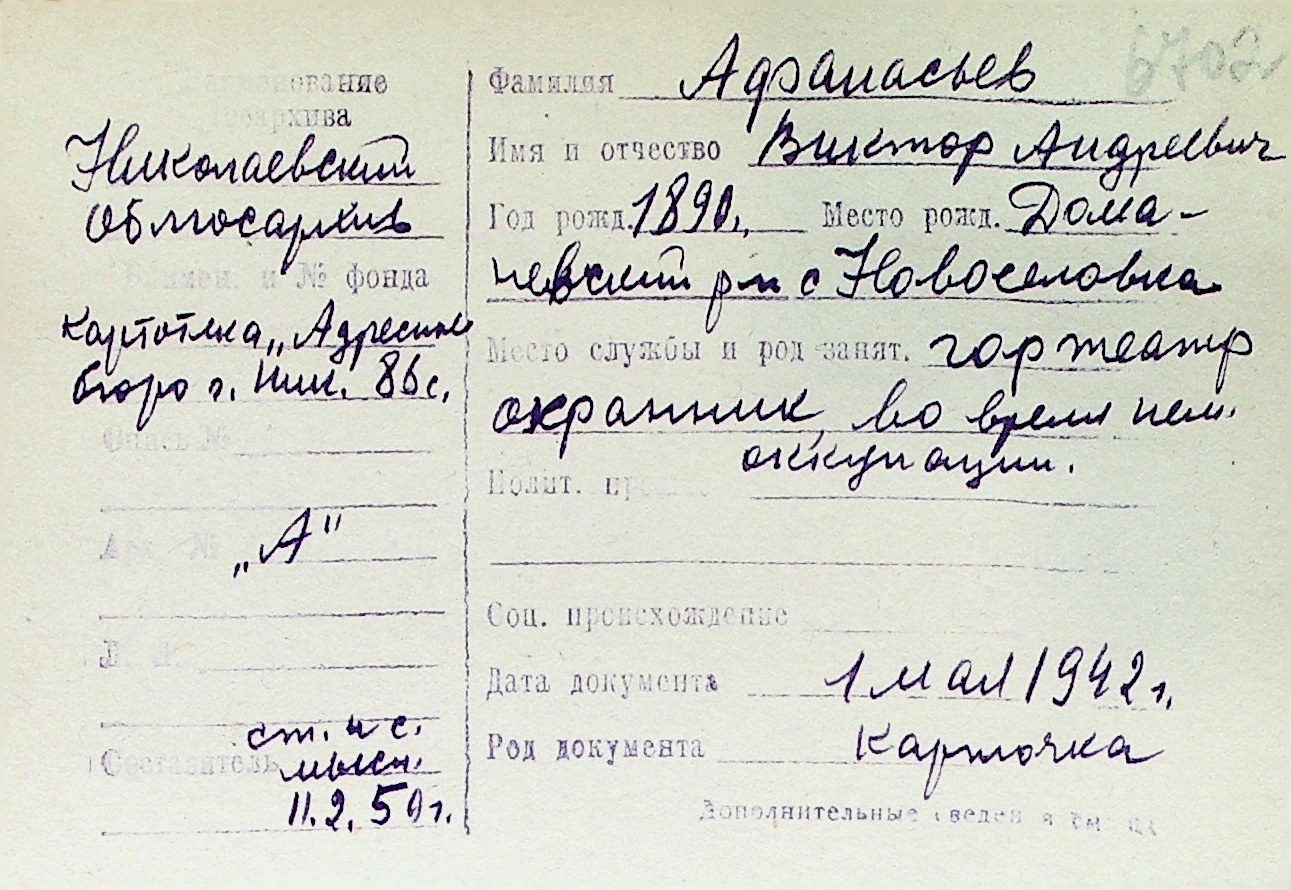 6702
Наименование
Госархива
Николаевский
Облгосархив
Наимен. и № фонда
Картотека „Адресное
бюро г. Ник. 86с.
Опись №
Арх №
„А"
Л. л.
Составитель ст. н с.
11.2.50г.
Фамилия Афанасьев
Имя и отчество Виктор Андреевич
Год рожд. 1890г. Место рожд. Дома-
невский р-н с Новоселовка
Место службы и род занят. гортеатр
охранник, во время нем.
оккупации.
Полит.
Соц. происхождение
Дата документа 1 мая 1942г.
Род документа Карточка
Дополнительные сведен